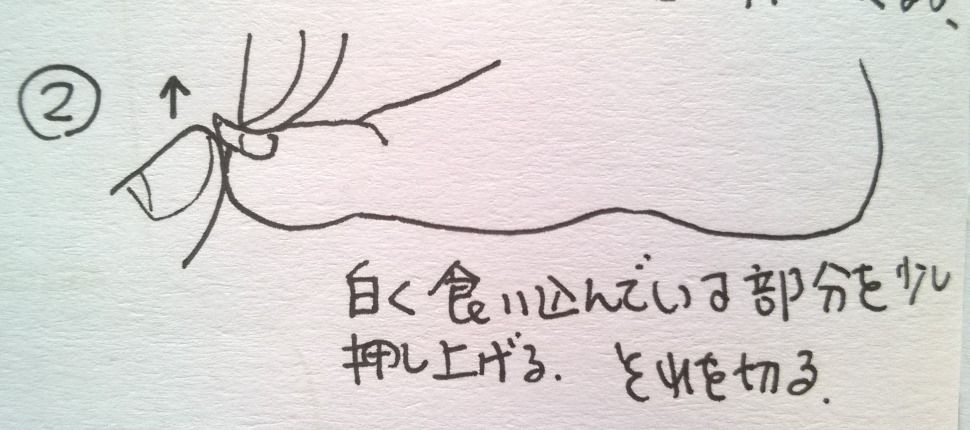 ②
白く食い込んでいる部分を少し
押し上げる. それを切る.